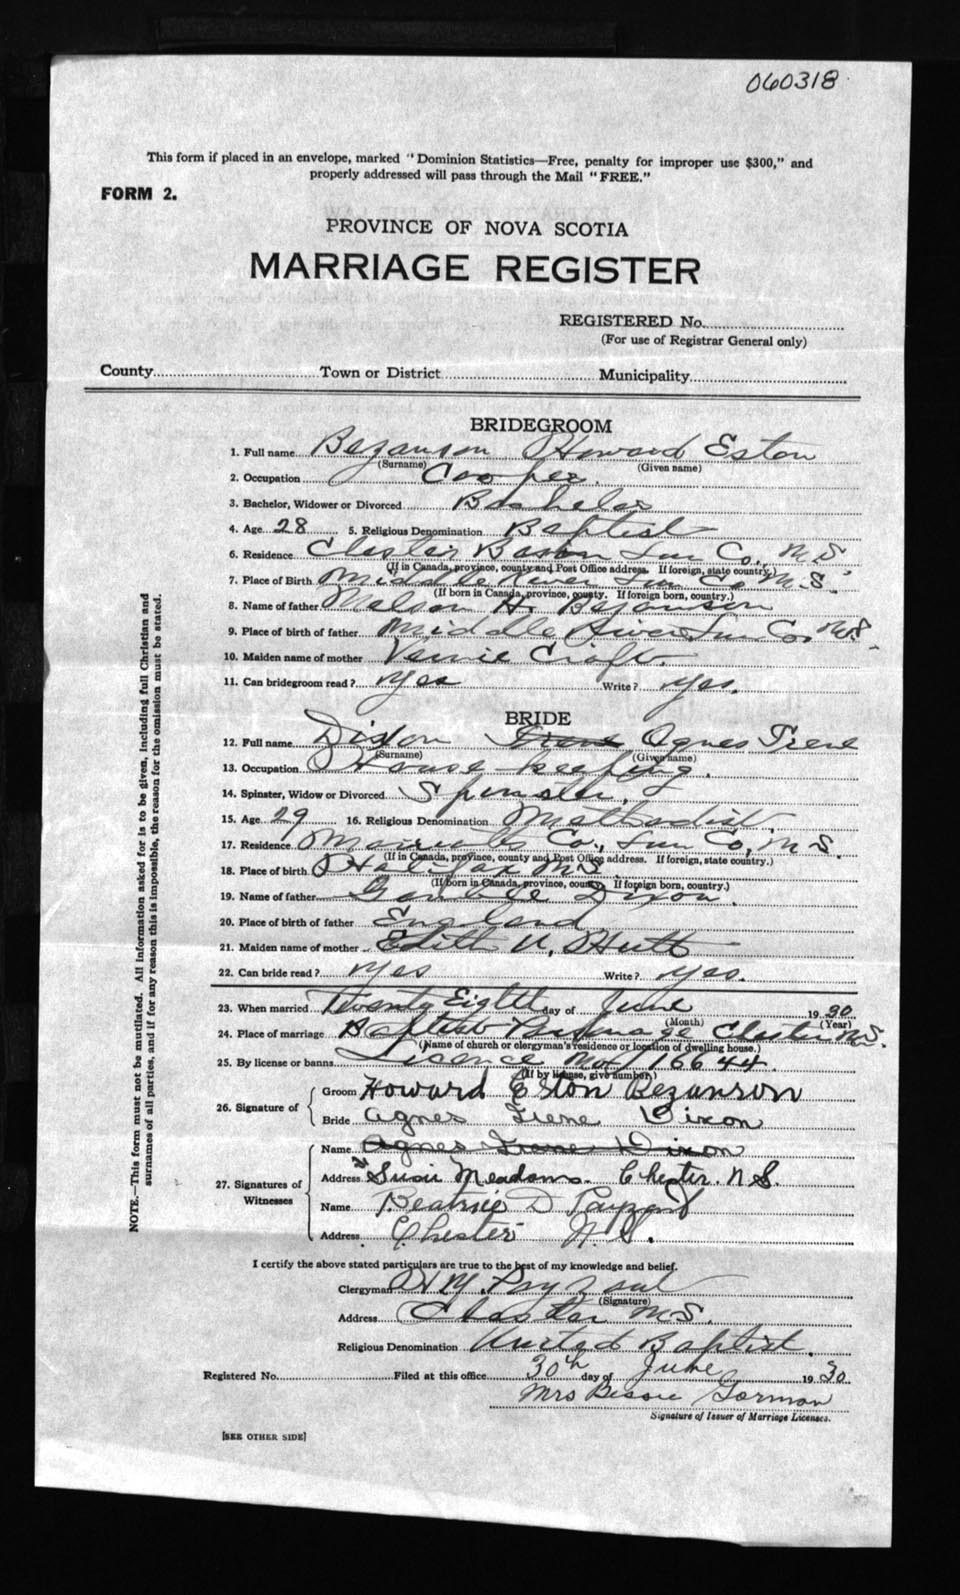 060318
This form if placed in an envelope, marked "Dominion Statistics—Free, penalty for improper use $300," and
properly addressed will pass through the Mail "FREE."
FORM 2.
PROVINCE OF NOVA SCOTIA
MARRIAGE REGISTER
REGISTERED No.
(For use of Registrar General only)
County Town or District Municipality
BRIDEGROOM
1. Full name Bezanson Howard Eston
(Surname) (Given name)
2. Occupation Cooper.
3. Bachelor, Widower or Divorced Bachelor
4. Age 28 5. Religious Denomination Baptist
6. Residence Chester Basin Lun Co., N S
(If in Canada, province, county and Post Office address. If foreign, state country.)
7. Place of Birth Middle River Lun Co N.S.
(If born in Canada, province, county. If foreign born, country.)
8. Name of father Nelson H. Bezanson
9. Place of birth of father Middle River Lun Co, N.S.
10. Maiden name of mother
11. Can bridegroom read? Yes Write? Yes.
BRIDE
12. Full name Dixon Irene Agnes Irene
(Surname) (Given name)
13. Occupation House keeping.
14. Spinster, Widow or Divorced Spinster.
15. Age 29 16. Religious Denomination Methodist.
17. Residence Lun Co, N.S.
(If in Canada, province, county and Post Office address. If foreign, state country.)
18. Place of birth Halifax N.S.
(If born in Canada, province, county. If foreign born, country.)
19. Name of father Dixon.
20. Place of birth of father England
21. Maiden name of mother Edith Hutt
22. Can bride read? Yes Write? Yes.
23. When married Twenty Eighth day of June 1930
(Month) (Year)
24. Place of marriage Baptist Parsonage Chester N.S.
(Name of church or clergyman's residence or location of dwelling house.)
25. By license or banns Licence No. 16644.
(If by license, give number.)
26. Signature of
Groom Howard Eston Bezanson
Bride Agnes Irene Dixon
27. Signatures of Witnesses
Name Agnes Irene Dixon
Address Susie Meadows. Chester. N S.
Name Beatrice D Payzant
Address Chester N. S.
I certify the above stated particulars are true to the best of my knowledge and belief.
Clergyman
(Signature)
Address Chester N.S.
Religious Denomination United Baptist.
Registered No. Filed at this office 30th day of June 1930
Mrs Bessie Gorman
Signature of Issuer of Marriage Licenses.
[SEE OTHER SIDE]
NOTE.—This form must not be mutilated. All information asked for is to be given, including full Christian and
surnames of all parties, and if for any reason this is impossible, the reason for the omission must be stated.